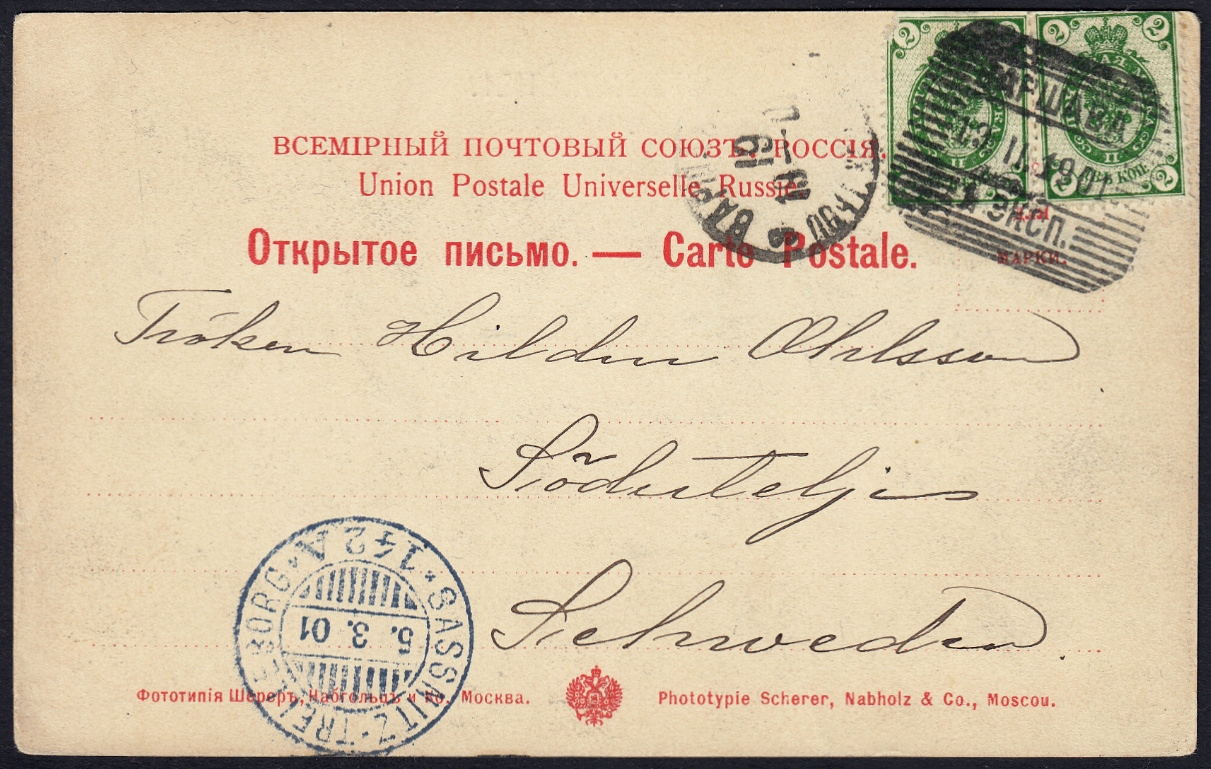 ВСЕМІРНЫЙ ПОЧТОВЫЙ СОЮЗЪ. РОССІЯ.
Union Postale Universelle. Russie.
Открытое письмо. — Carte Postale.
МАРКИ.
2 2
2 2
ВАРШАВА
13 II 1901
1 ЭКСП.
Fröken Hilda Ohlsson
Södertelje
Schweden
SASSNITZ-TRELLEBORG * 142 A *
5. 3. 01
Фототипія Шереръ, Набгольцъ и Ко. Москва.
Phototypie Scherer, Nabholz & Co., Moscou.